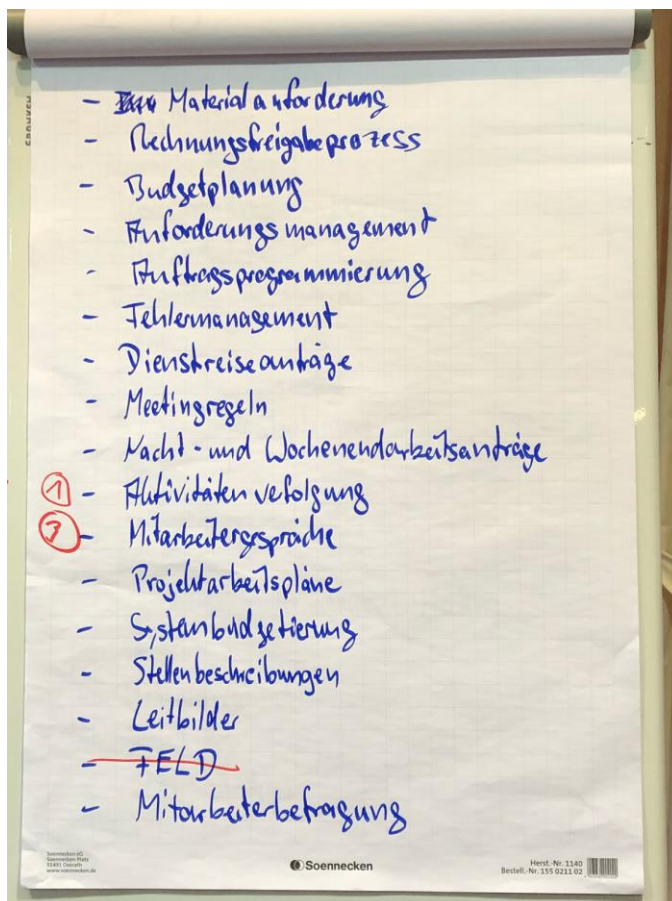 - Materialanforderung
- Rechnungsfreigabeprozess
- Budgetplanung
- Anforderungsmanagement
- Auftragsprogrammierung
- Fehlermanagement
- Dienstreiseanträge
- Meetingregeln
- Nacht- und Wochenendarbeitsanträge
① - Aktivitäten vefolgung
③ - Mitarbeitergespräche
- Projektarbeitspläne
- Systembudgetierung
- Stellenbeschreibungen
- Leitbilder
- FELD
- Mitarbeiterbefragung
Soennecken eG
Soennecken Platz
51491 Overath
www.soennecken.de
Soennecken
Herst.-Nr. 1140
Bestell.-Nr. 155 0211 02